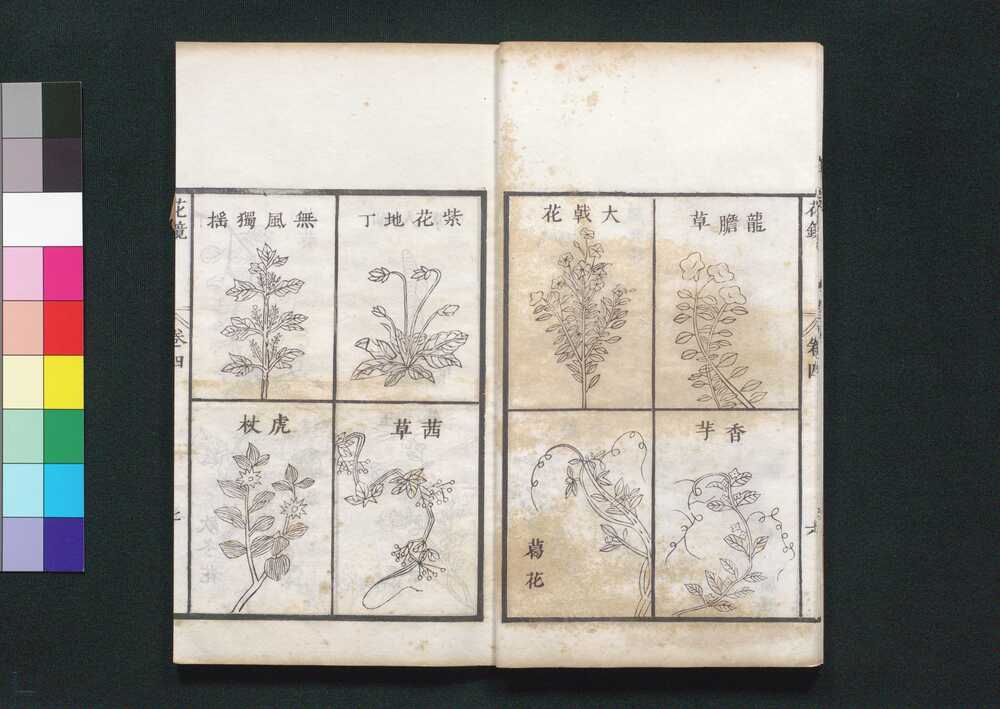 龍膽草
大戟花
香芋
葛花
紫花地丁
無風獨揺
茜草
虎杖
花鏡
卷四
卷四